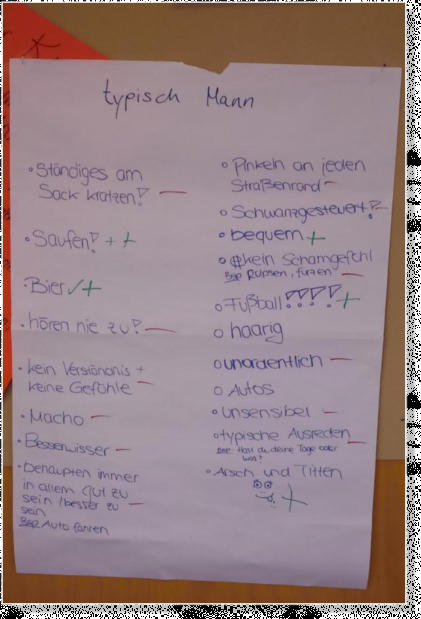 typisch Mann
• Ständiges am
Sack kratzen! –
• Saufen! + +
• Bier ✓ +
• hören nie zu! –
• kein Verständnis +
keine Gefühle –
• Macho –
• Besserwisser –
• behaupten immer
in allem gut zu
sein / besser zu –
sein
Bsp Auto fahren
• Pinkeln an jeden
Straßenrand –
• Schwanzgesteuert! –
• bequem +
• kein Schamgefühl
Bsp Rülpsen, furzen –
• Fußball !!!! +
• haarig
• unordentlich –
• Autos
• unsensibel –
• typische Ausreden –
Bsp Hast du deine Tage oder
was?
• Arsch und Titten
+